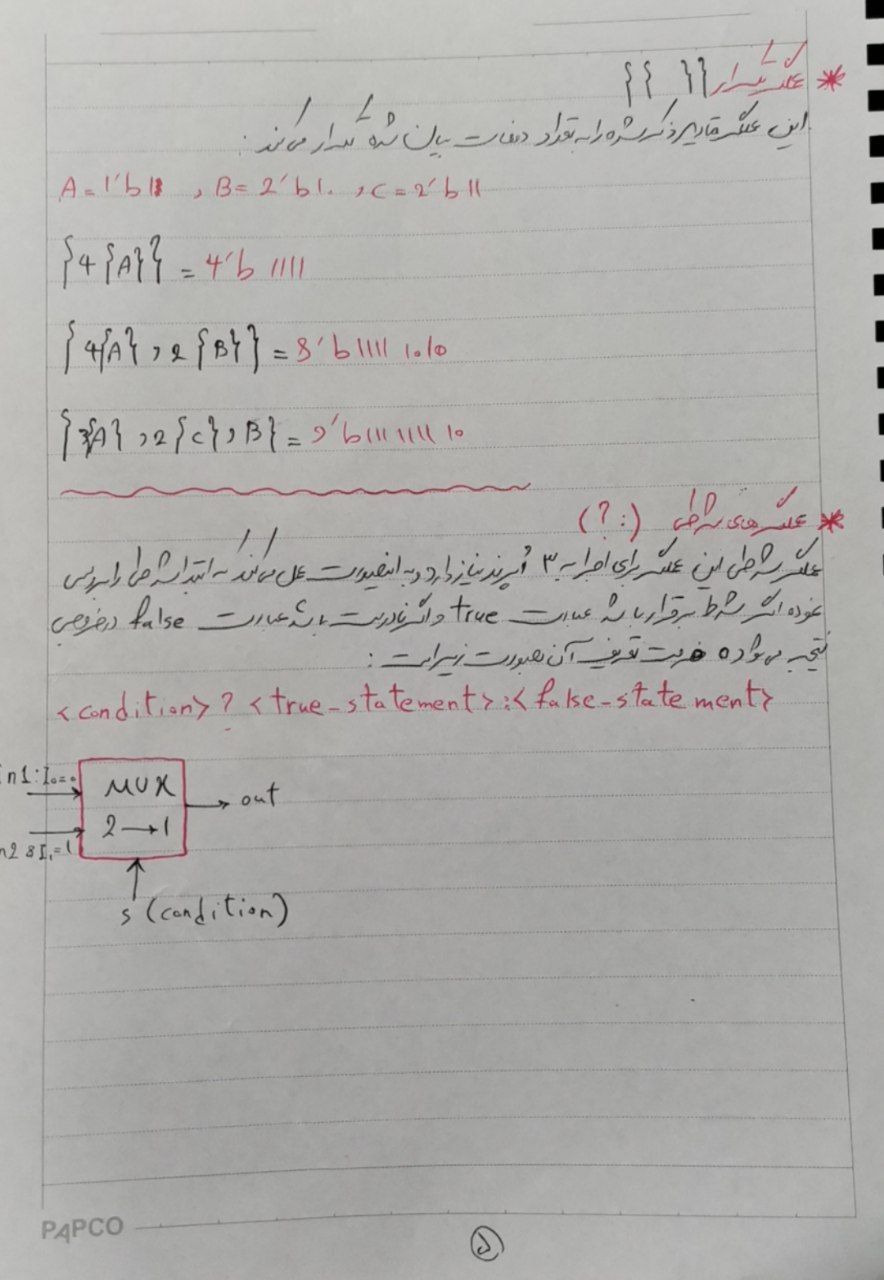 * عملگر تکرار {{ }}
این عملگر مقادیر ذکر شده را به تعداد دفعات بیان شده تکرار می‌کند:
A = 1'b1 , B = 2'b1۰ , C = 2'b11
{4{A}} = 4'b 1111
{4{A} , 2{B}} = 8'b1111 1010
{3{A} , 2{C} , B} = 9'b111 1111 10
* عملگرهای شرطی (? :)
عملگر شرطی این عملگر برای اجرا به ۳ اُپرند نیاز دارد و به اینصورت عمل می‌کند که ابتدا شرط را بررسی
نموده اگر شرط برقرار باشد عبارت true و اگر نادرست باشد عبارت false در خروجی
نتیجه می‌دهد فرمت تعریف آن بصورت زیر است:
<condition> ? <true-statement> : <false-statement>
n1 : I₀=۰
MUX
out
2→1
n2 : I₁=1
s (condition)
PAPCO
۵